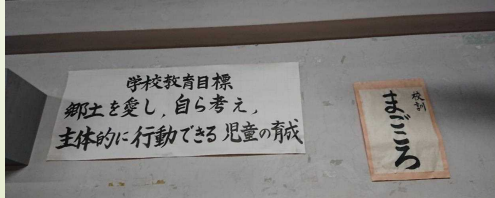 学校教育目標
郷土を愛し,自ら考え,
主体的に行動できる児童の育成
校訓
まごころ